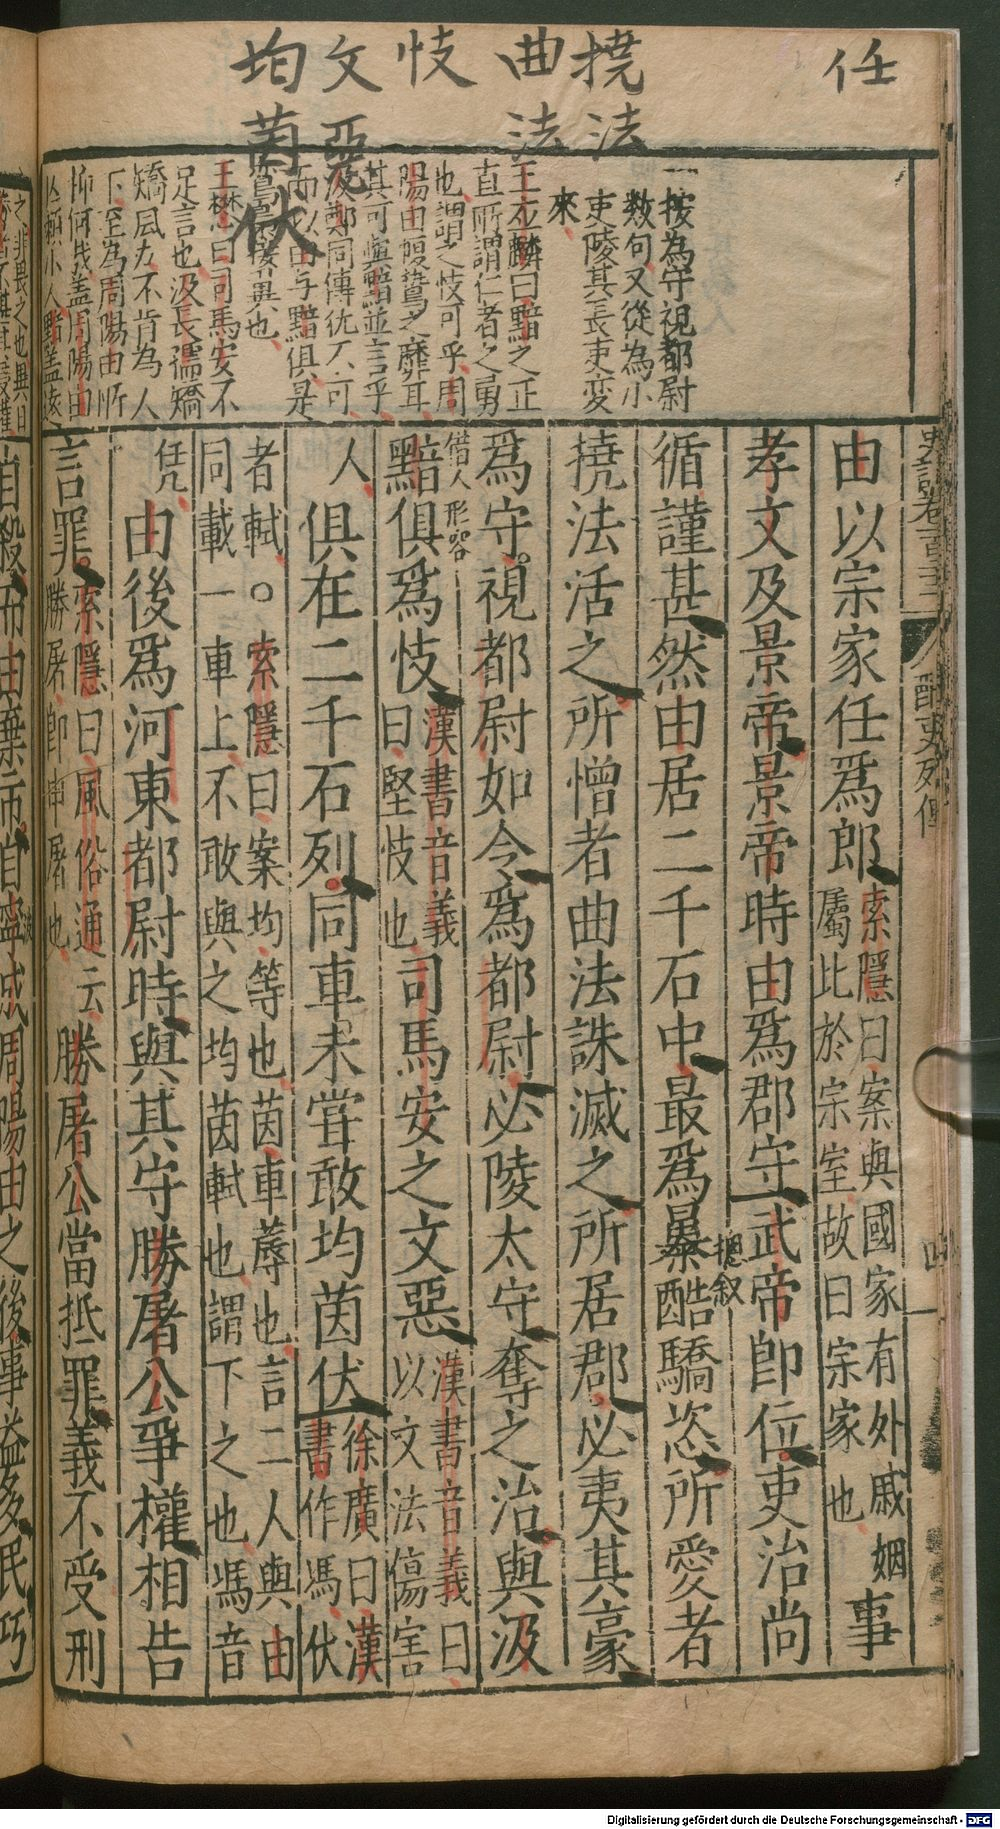 任
撓法
曲法
忮
文惡
均茵伏
一按為守視都尉
数句又從為小
吏陵其長吏変
來
王丕麟曰黯之正
直所謂仁者之勇
也謂之忮可乎周
陽由蝮鷙之靡耳
其可與黯並言乎
汲鄭同傳仇不可
而以由与黯俱是
鸞梟接翼也
王楙曰司馬安不
足言也汲長孺矯
矯風力不肯為人
下至為周陽由所
抑何哉盖周陽由
史記卷一百二十二 酷吏列傳 四
由以宗家任爲郎索隱曰案與國家有外戚姻
屬比於宗室故曰宗家也事
孝文及景帝景帝時由爲郡守武帝即位吏治尚
循謹甚然由居二千石中最爲暴酷驕恣所愛者
摠叙
撓法活之所憎者曲法誅滅之所居郡必夷其豪
爲守視都尉如令爲都尉必陵太守奪之治與汲
借人形容
黯俱爲忮漢書音義
曰堅忮也司馬安之文惡漢書音義曰
以文法傷害
人俱在二千石列同車未甞敢均茵伏徐廣曰漢
書作馮伏
者軾○索隱曰案均等也茵車蓐也言二人與由
同載一車上不敢與之均茵軾也謂下之也馮音
凭由後爲河東都尉時與其守勝屠公爭權相告
言罪索隱曰風俗通云
勝屠即申屠也勝屠公當抵罪義不受刑
自殺而由棄市自寗成周陽由之後事益多民巧
Digitalisierung gefördert durch die Deutsche Forschungsgemeinschaft - DFG